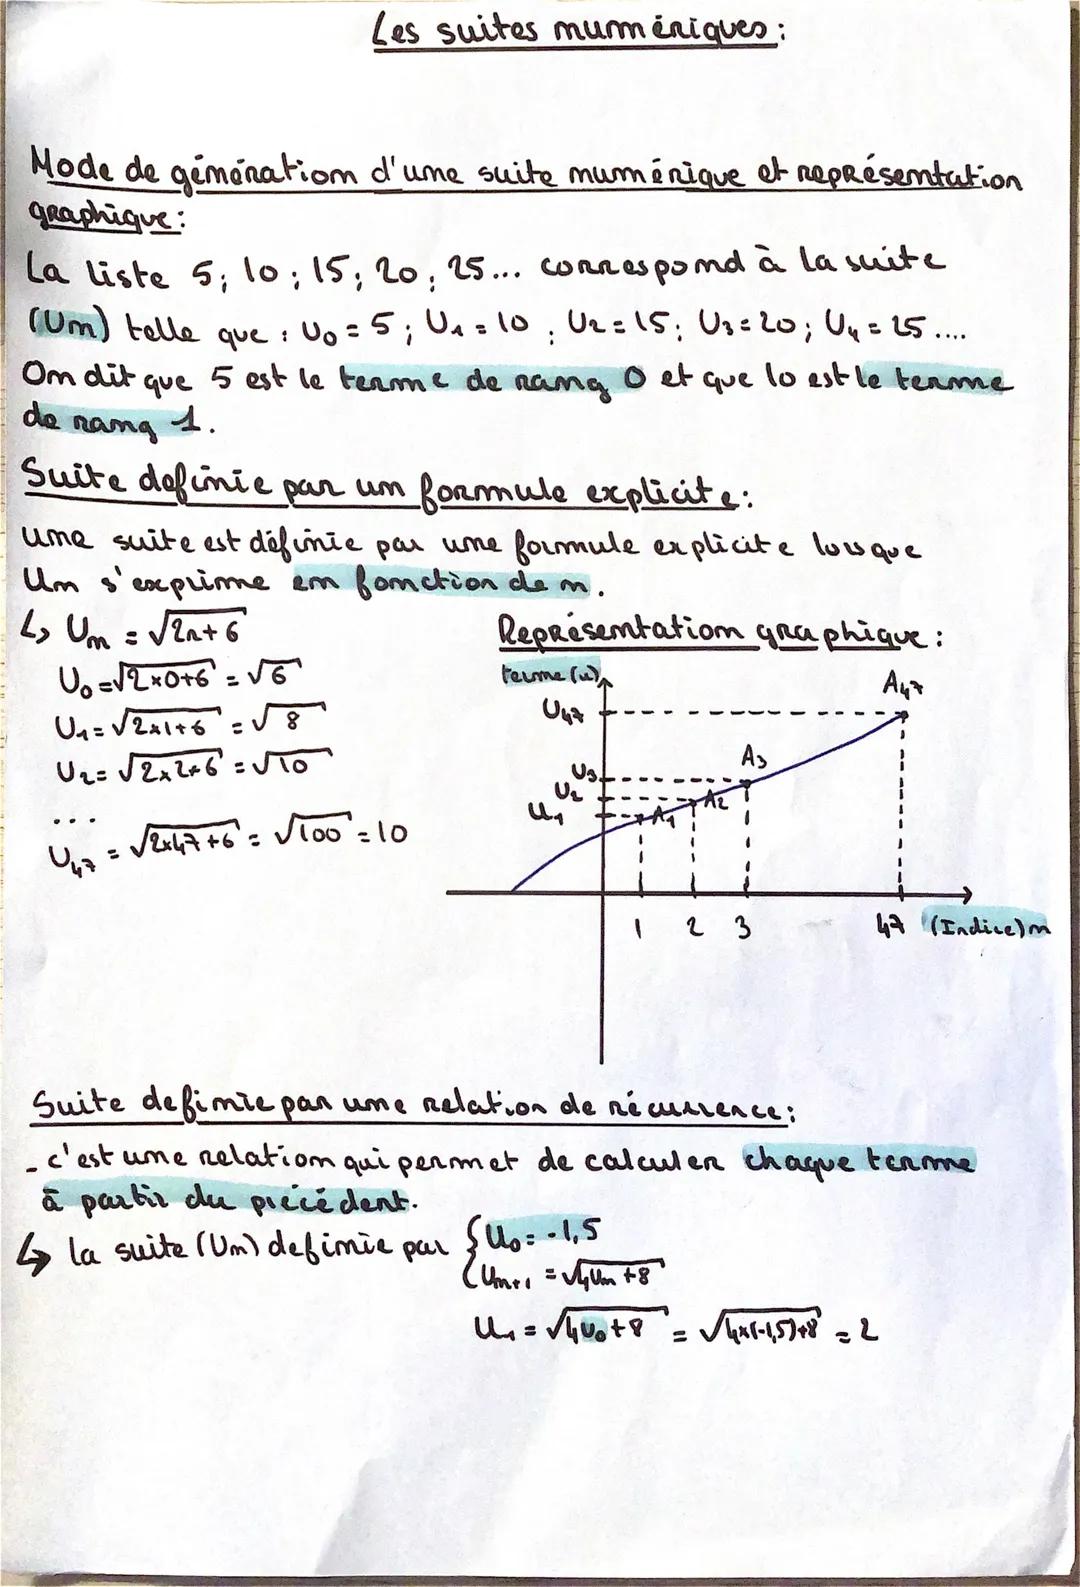 Les suites numériques :
Mode de génération d'une suite numérique et représentation
graphique :
La liste 5 ; 10 ; 15 ; 20 ; 25... correspond à la suite
(Un) telle que : U₀ = 5 ; U₁ = 10 ; U₂ = 15 ; U₃ = 20 ; U₄ = 25 ....
On dit que 5 est le terme de rang 0 et que 10 est le terme
de rang 1.
Suite definie par un formule explicite :
une suite est définie par une formule explicite lorsque
Un s'exprime en fonction de n.
↳ Un = √(2n+6)
U₀ = √(2×0+6) = √6
U₁ = √(2×1+6) = √8
U₂ = √(2×2+6) = √10
...
U₄₇ = √(2×47+6) = √100 = 10
Représentation graphique :
terme (u)
U₄₇
U₃
U₂
U₁
A₁
A₂
A₃
A₄₇
1 2 3 47 (Indice) n
Suite definie par une relation de récurrence :
- c'est une relation qui permet de calculer chaque terme
à partir du précédent.
↳ la suite (Un) definie par { U₀ = -1,5
Un+1 = √(4Un+8)
U₁ = √(4U₀+8) = √(4×(-1,5)+8) = 2